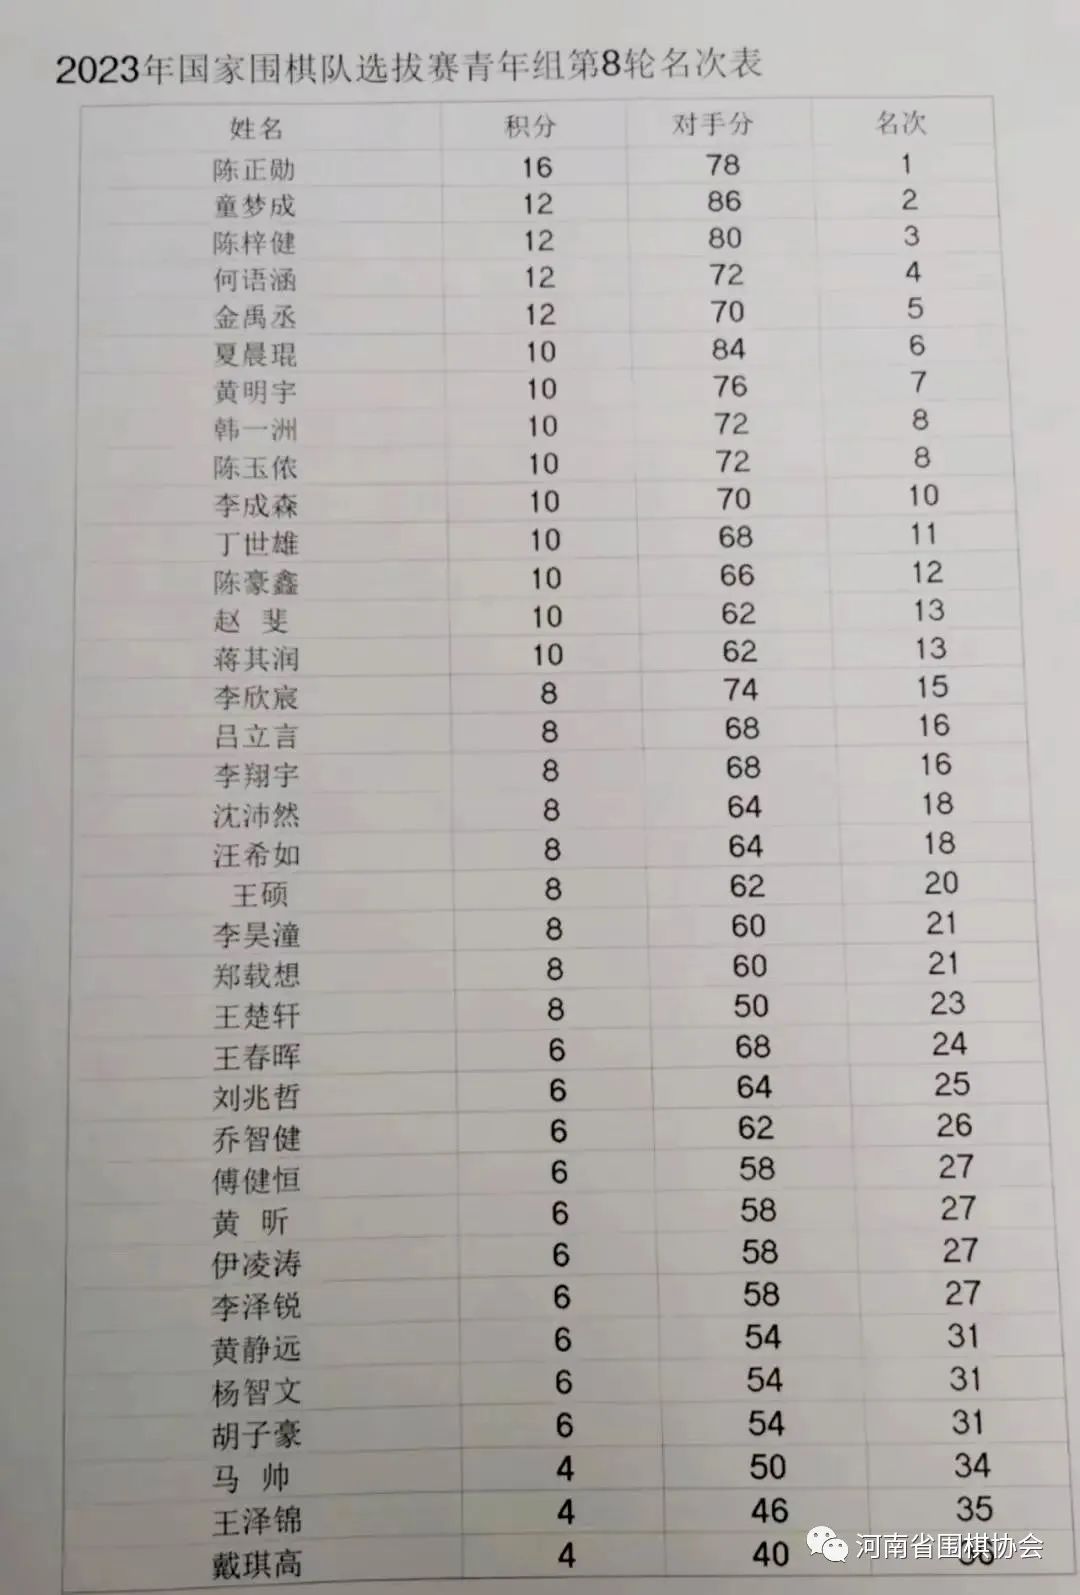 2023年国家围棋队选拔赛青年组第8轮名次表
姓名 积分 对手分 名次
陈正勋 16 78 1
童梦成 12 86 2
陈梓健 12 80 3
何语涵 12 72 4
金禹丞 12 70 5
夏晨琨 10 84 6
黄明宇 10 76 7
韩一洲 10 72 8
陈玉侬 10 72 8
李成森 10 70 10
丁世雄 10 68 11
陈豪鑫 10 66 12
赵 斐 10 62 13
蒋其润 10 62 13
李欣宸 8 74 15
吕立言 8 68 16
李翔宇 8 68 16
沈沛然 8 64 18
汪希如 8 64 18
王硕 8 62 20
李昊潼 8 60 21
郑载想 8 60 21
王楚轩 8 50 23
王春晖 6 68 24
刘兆哲 6 64 25
乔智健 6 62 26
傅健恒 6 58 27
黄 昕 6 58 27
伊凌涛 6 58 27
李泽锐 6 58 27
黄静远 6 54 31
杨智文 6 54 31
胡子豪 6 54 31
马 帅 4 50 34
王泽锦 4 46 35
戴琪高 4 40 36
河南省围棋协会